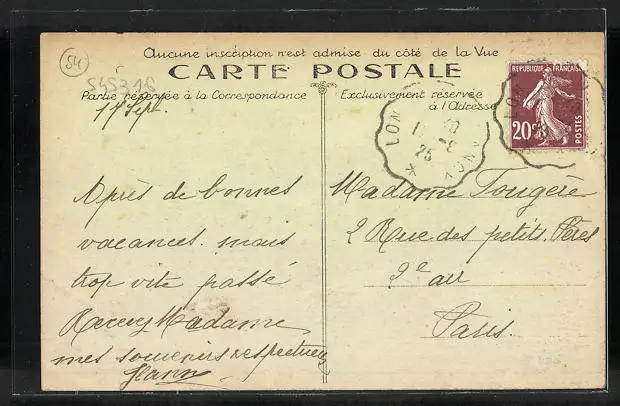 54
545316
Aucune inscription n'est admise du côté de la Vue
CARTE POSTALE
Partie réservée à la Correspondance
Exclusivement réservée
à l'Adresse
REPUBLIQUE FRANÇAISE
20c
POSTES
LON
25
17 Sept.
Après de bonnes
vacances. mais
trop vite passé
Recevez Madame
mes souvenirs respectueux
Madame Fougère
2 Rue des petits. Pères
2e arr
Paris.